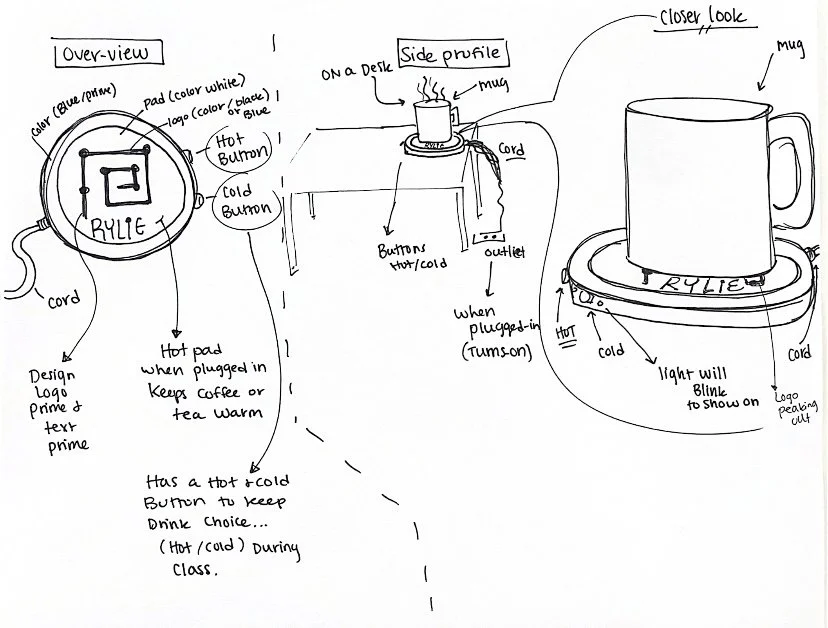 Over-view
Color (Blue/prime)
pad (color white)
logo (color/black)
or Blue
Hot
Button
Cold
Button
RYLIE
Cord
Design
Logo
prime &
text
prime
Hot pad
when plugged in
keeps coffee or
tea warm
Has a Hot & cold
Button to keep
Drink Choice...
(Hot/cold) During
Class.
Side profile
ON a Desk
mug
RYLIE
Cord
Buttons
Hot/cold
outlet
when
plugged-in
(Turns-on)
Closer look
mug
RYLIE
HOT
Cold
light will
Blink
to show on
Cord
Logo
peaking
out